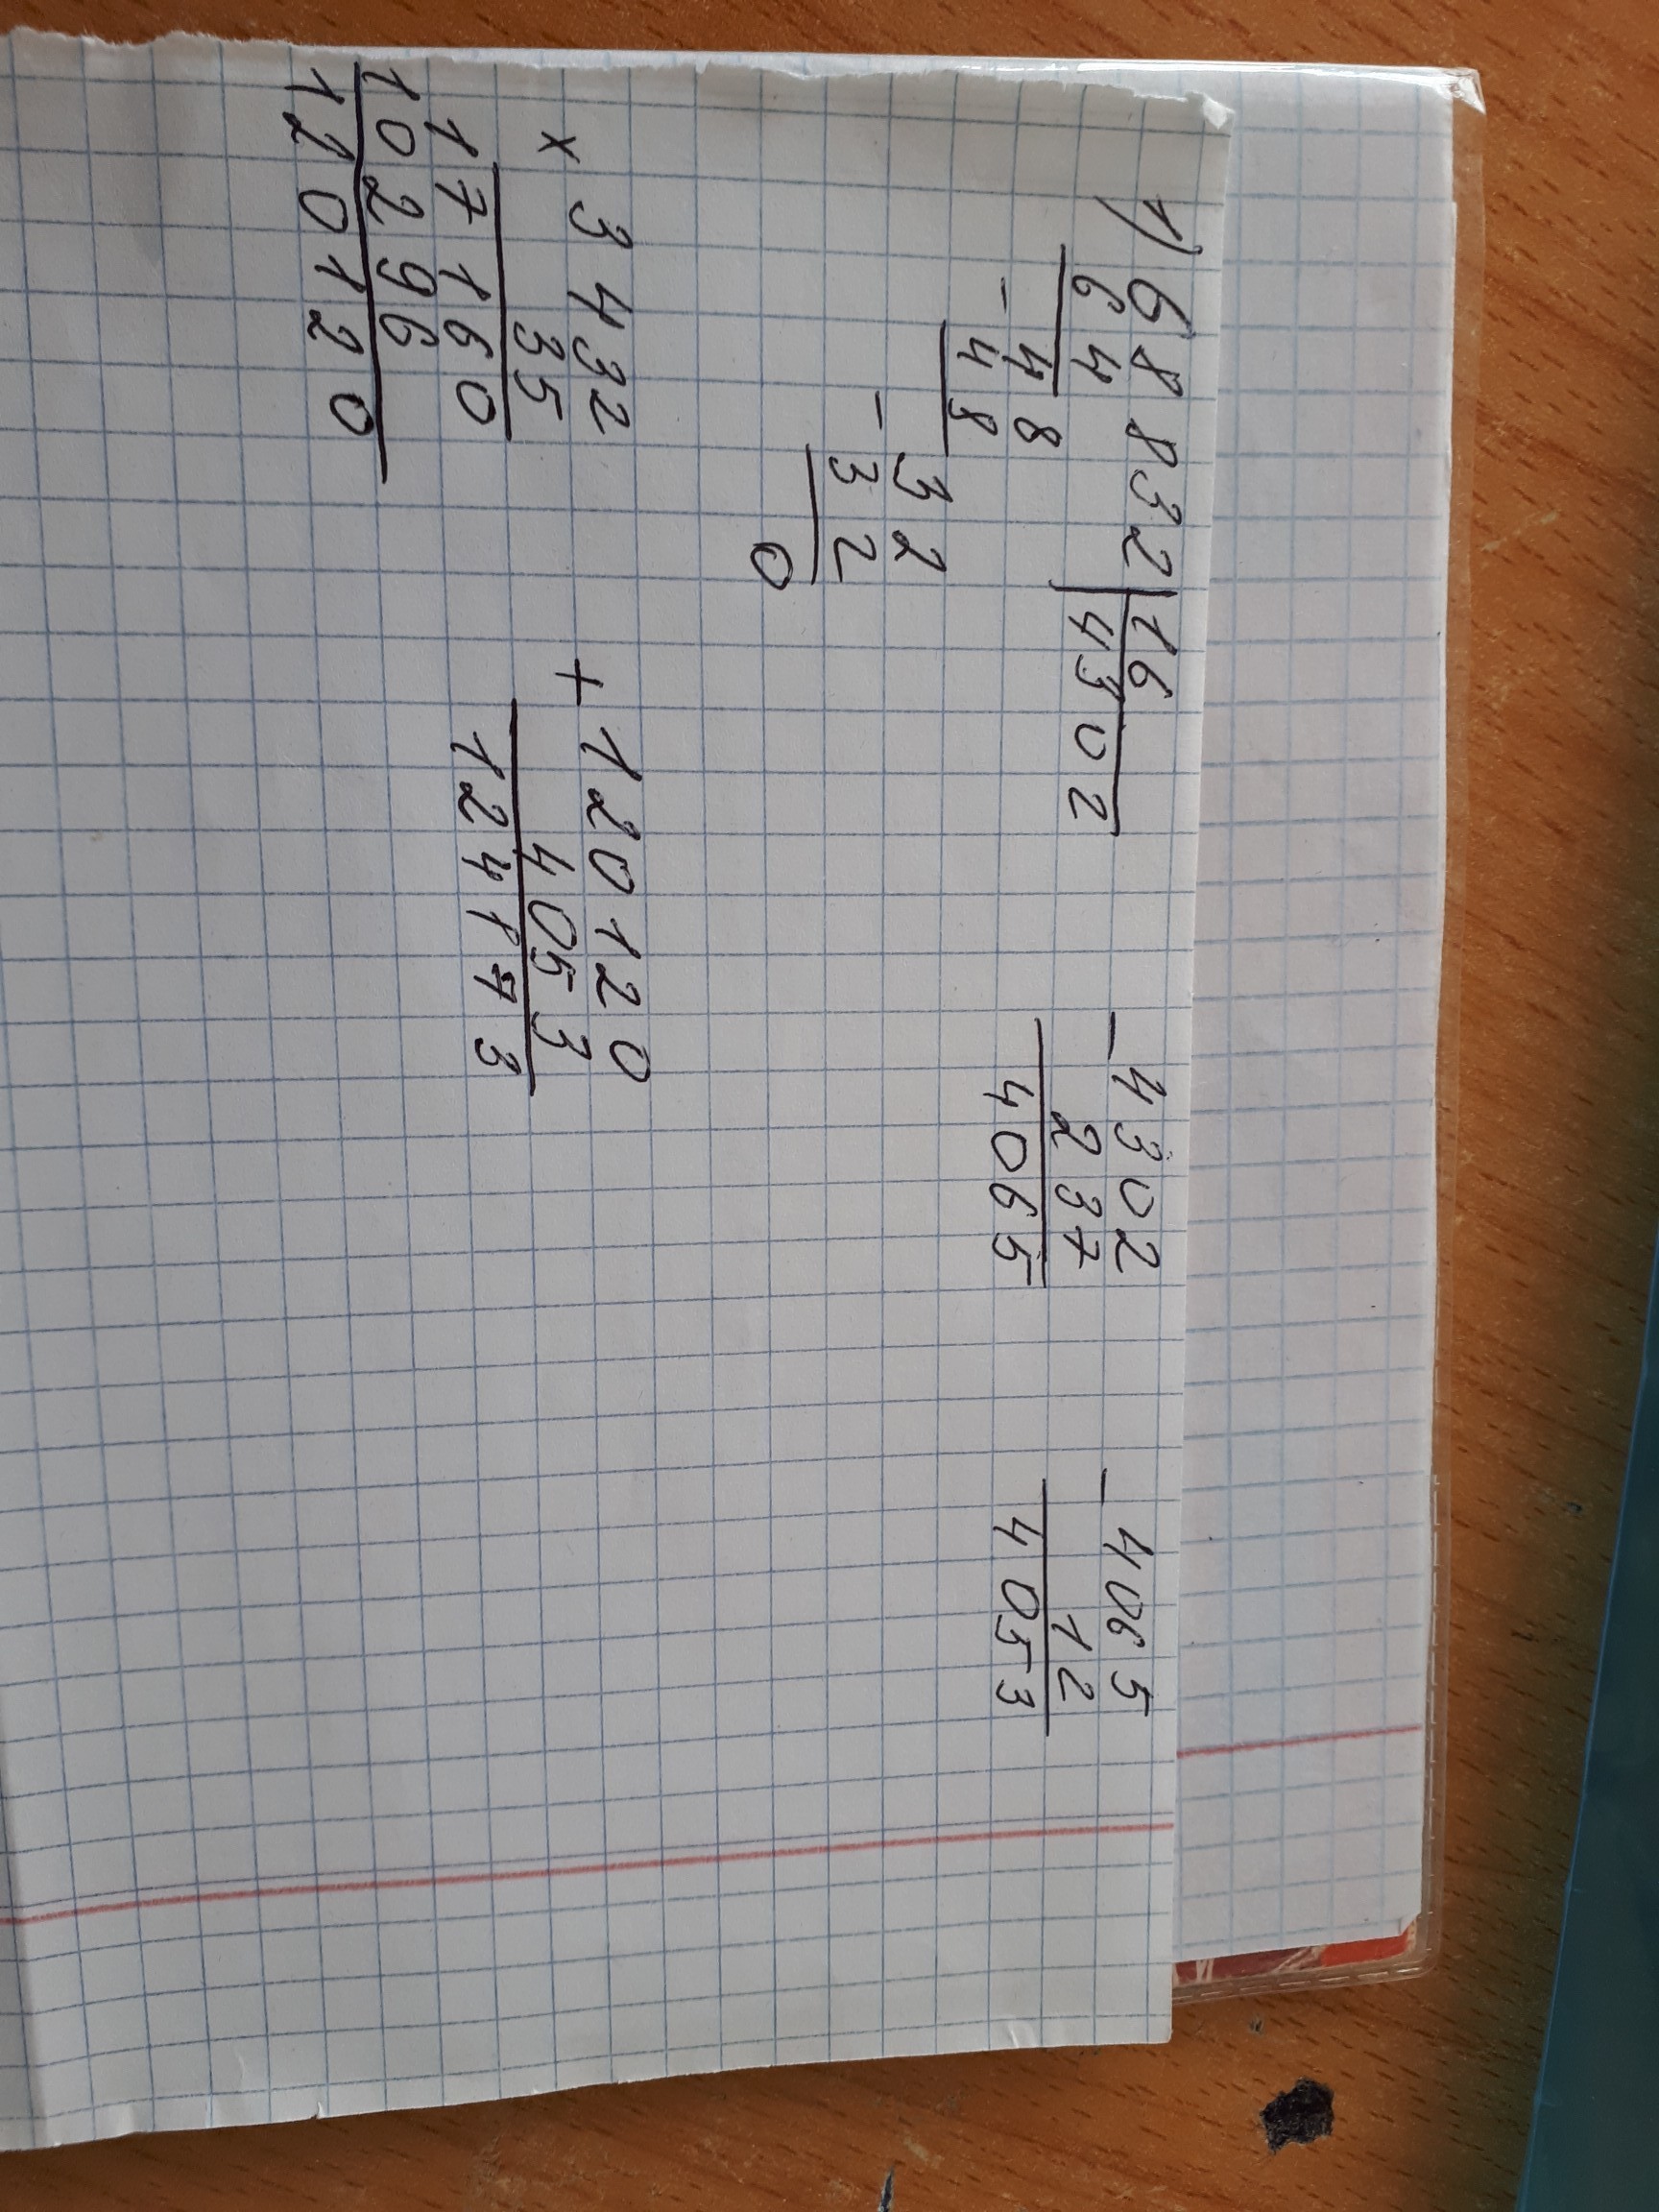 1) 68832 | 16
64 | 4302
- 48
48
- 32
32
0
- 4302
237
4065
- 4065
12
4053
× 3432
35
17160
10296
120120
+ 120120
4053
124173